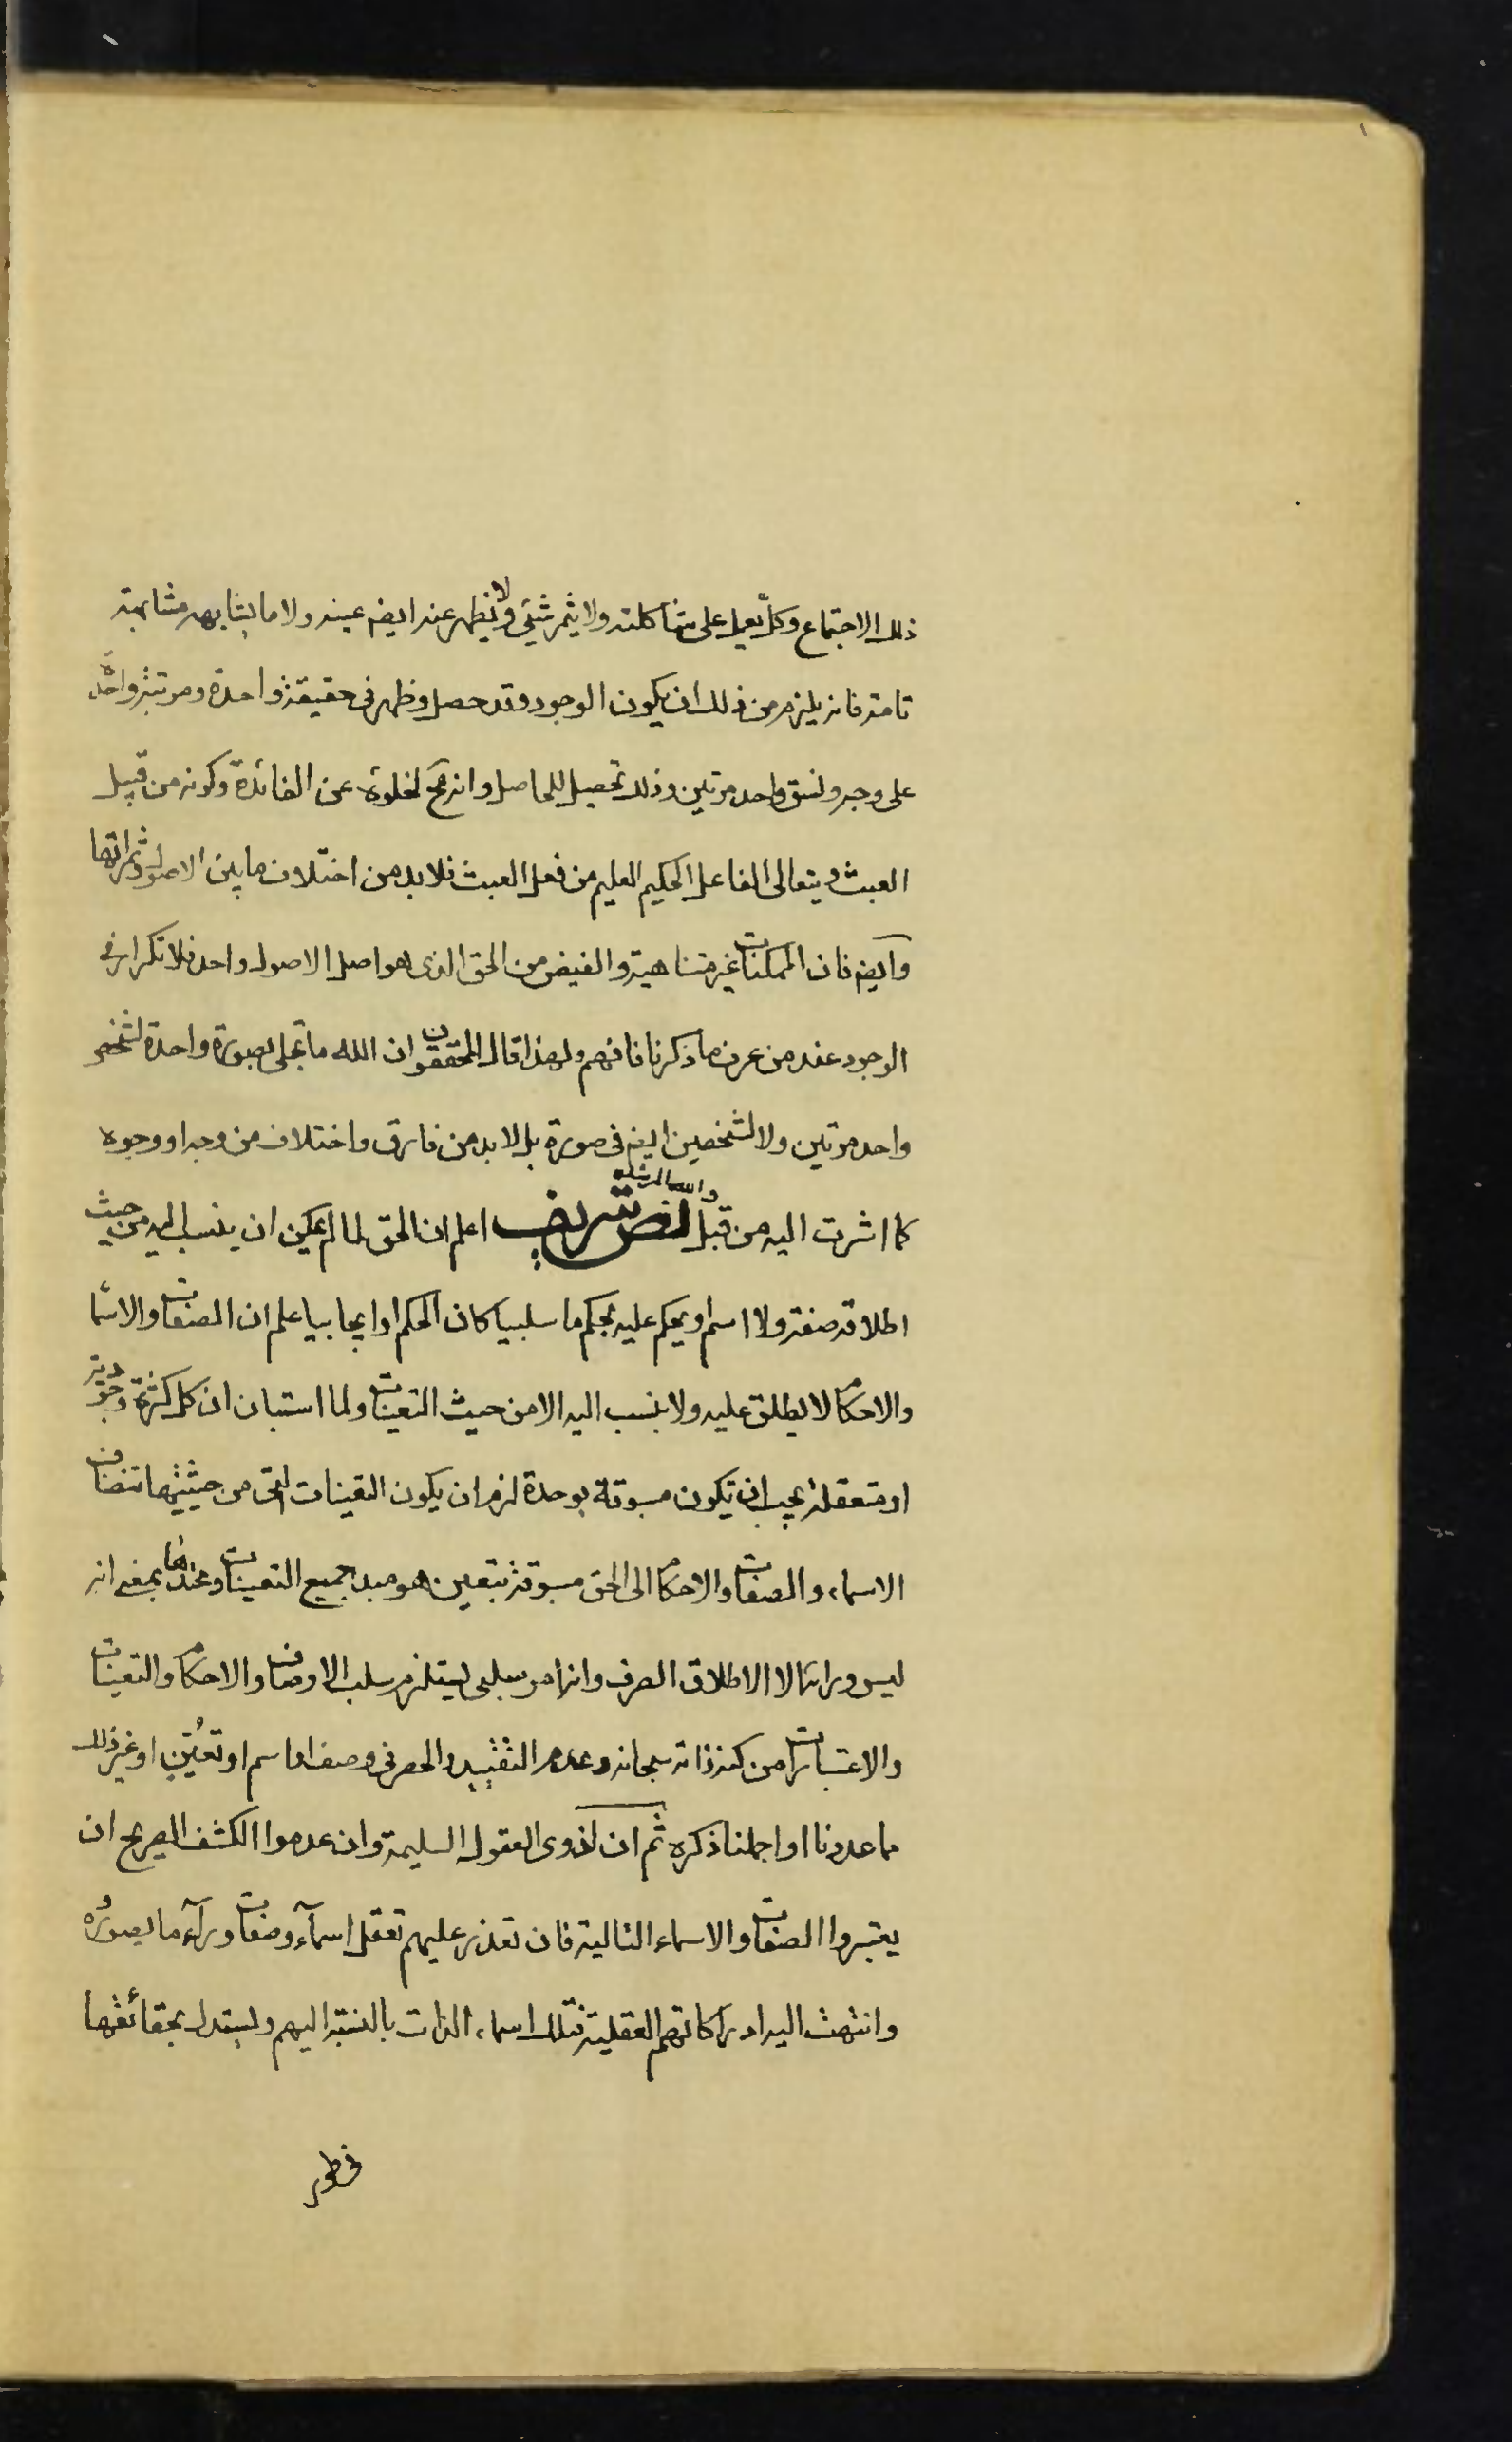 ذلك الاجتماع وكل يعمل على شاكلته ولا يثمر شيئ ولا يظهر عنه ايضم عينه ولا ما يشابهه مشابهة
تامة فانه يلزم من ذلك ان يكون الوجود وقد حصل وظهر فى حقيقة واحدة ومرتبة واحدة
على وجه ونسق واحد مرتين وذلك تحصيل للحاصل وانه مح لخلوه عن الفائدة وكونه من قبيل
العبث ويتعالى الفاعل الحكيم العليم من فعل العبث فلا بد من اختلاف ما بين الاصول وثمراتها
وآيضم فان الممكنات غير متناهية والفيض من الحق الذى هو اصل الاصول واحد فلا تكرار فى
الوجود عند من عرف ما ذكرنا فافهم ولهذا قال المحققون ان الله ما تجلى بصورة واحدة لشخص
واحد مرتين ولا لشخصين ايضم فى صورة بل لا بد من فارق واختلاف من وجه او وجوه
كما اشرت اليه من قبل والله المرشد نص شريف اعلم ان الحق لما لم يمكن ان ينسب اليه من حيث
اطلاقه صفة ولا اسم او يحكم عليه بحكم ما سلبيا كان الحكم او ايجابيا علم ان الصفات والاسما
والاحكام لا يطلق عليه ولا ينسب اليه الا من حيث التعينات ولما استبان ان كل كثرة وجودية
او متعقلة يجب ان تكون مسبوقة بوحدة لزم ان يكون التعينات التى من حيثيتها تنضاف
الاسماء والصفات والاحكام الى الحق مسبوقة بتعين هو مبدا جميع التعينات ومحتدها بمعنى انه
ليس ورائه الا الاطلاق الصرف وانه امر سلبى يستلزم سلب الاوصاف والاحكام والتعينات
والاعتبارات من كنه ذاته سبحانه وعدم التقييد والحصر فى وصف او اسم او تعين او غير ذلك
ما عددنا او اجملنا ذكره ثم ان لذوى العقول السليمة وان عدموا الكشف الصريح ان
يعتبروا الصفات والاسماء التالية فان تعذر عليهم تعقل اسمآء وصفات ورآء ما يصوره
وانتهت اليه ادراكاتهم العقلية فتلك اسماء الذات بالنسبة اليهم ويستدل بحقائقها
فى طور